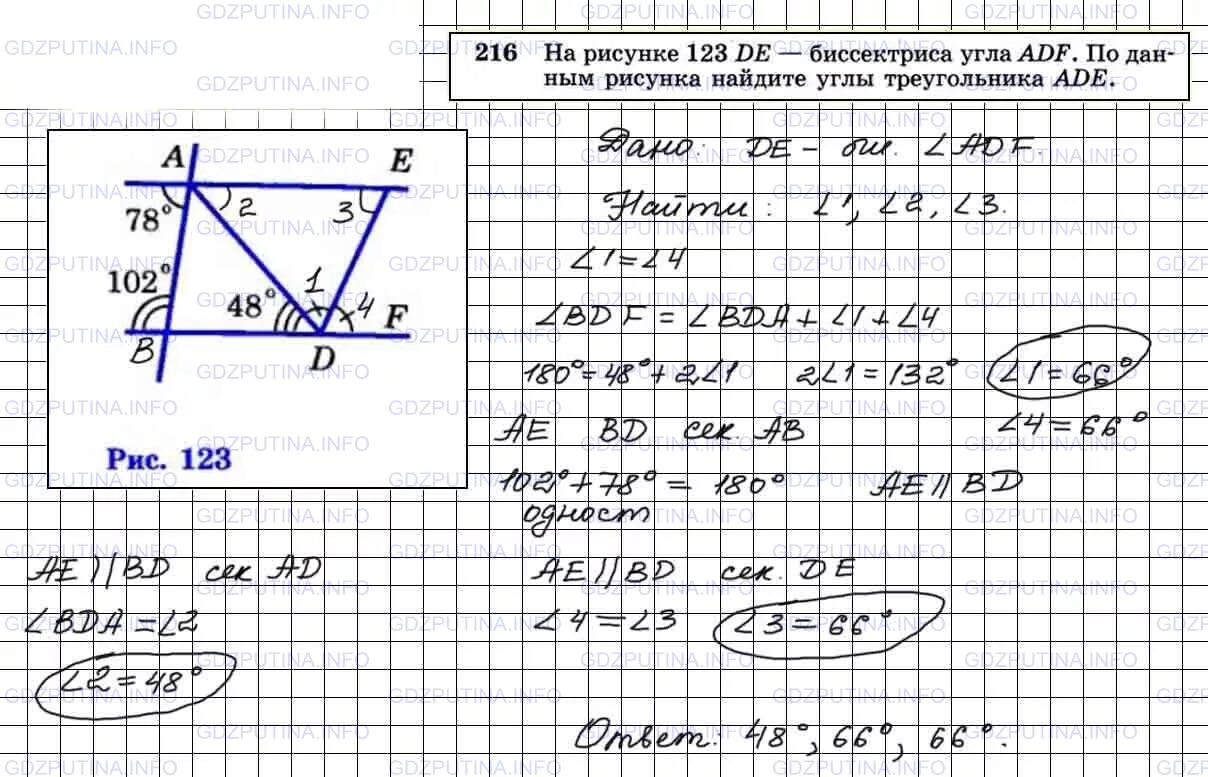 216 На рисунке 123 DE — биссектриса угла ADF. По дан-
ным рисунка найдите углы треугольника ADE.
A
E
78°
2
3
102°
48°
1
4
F
B
D
Рис. 123
Дано: DE – бис. ∠ADF.
Найти: ∠1, ∠2, ∠3.
∠1=∠4
∠BDF = ∠BDA+∠1+∠4
180°=48°+2∠1 2∠1=132° ∠1=66°
AE BD сек. AB ∠4=66°
102°+78° = 180° AE||BD
одност
AE||BD сек AD
∠BDA=∠2
∠2=48°
AE||BD сек. DE
∠4=∠3 ∠3=66°
Ответ: 48°, 66°, 66°.
GDZPUTINA.INFO